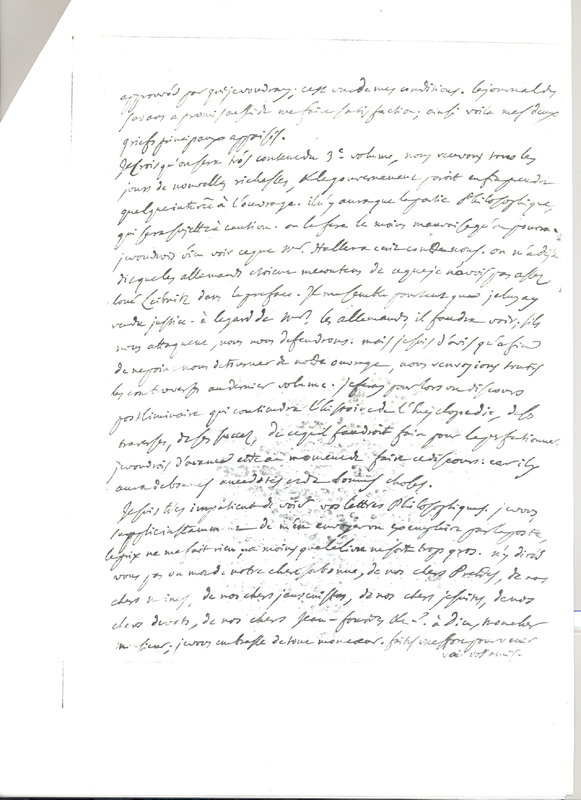 approuvés par qui je voudray; c'est une de mes conditions. le journal des
savans a promis aussi de me faire satisfaction; ainsi voila mes deux
griefs principaux appaisés.
Je crois qu'on sera trés content du 3e. volume, nous recevons tous les
jours de nouvelles richesses, & le gouvernement paroit enfin prendre
quelque interêt à l'ouvrage. il n'y aura que la partie Philosophique,
qui sera sujette à caution. on la fera le moins mauvaise qu'on pourra.
je voudrois bien voir ce que Mr. Haller a ecrit contre nous. on m'a deja
dit que les allemands etoient mecontens de ce que je n'avois pas assez
loué Leibnitz dans la preface. Il me semble pourtant que je luy ay
rendu justice. à l'egard de Mrs. les allemands, il faudra voir; s'ils
nous attaquent, nous nous defendrons. mais je suis d'avis qu'afin
de ne point nous detourner de notre ouvrage, nous renvoyions toutes
les controverses au dernier volume. Je feray pour lors un discours
postliminaire qui contiendra l'histoire de l'Encyclopedie, de ses
traverses, de ses succez, de ce qu'il faudroit faire pour la perfectionner.
je voudrois d'avance etre au moment de faire ce discours: car il y
aura de bonnes anecdotes et de bonnes choses.
Je suis tres impatient de voir vos lettres Philosophiques. je vous
supplie instamment de m'en envoyer un exemplaire par la poste,
le prix ne me fait rien, à moins que le livre ne soit trop gros. n'y dites
vous pas un mot de notre chere sorbonne, de nos chers Prestres, de nos
chers moines, de nos chers jansenistes, de nos chers jesuites, de nos
chers devots, de nos chers Jean-foutres &c? à Dieu, mon cher
monsieur; je vous embrasse de tout mon cœur. faites un effort pour venir
voir vos amis.